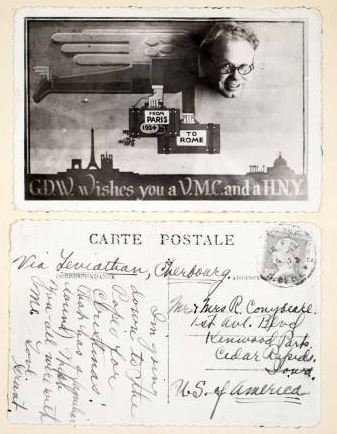 FROM
PARIS
1924
TO
ROME
G.D.W. Wishes you a V.M.C. and a H.N.Y.
CARTE POSTALE
Via Leviathan, Cherbourg.
CORRESPONDANCE
ADRESSE
I'm going
down to the
Pope's for
Christmas!
has a
Wish
you all were with
me. Love
Grant.
Mr & Mrs R. Conybeare.
1st Ave. Blvd
Kenwood Park.
Cedar Rapids.
Iowa.
U.S. of America